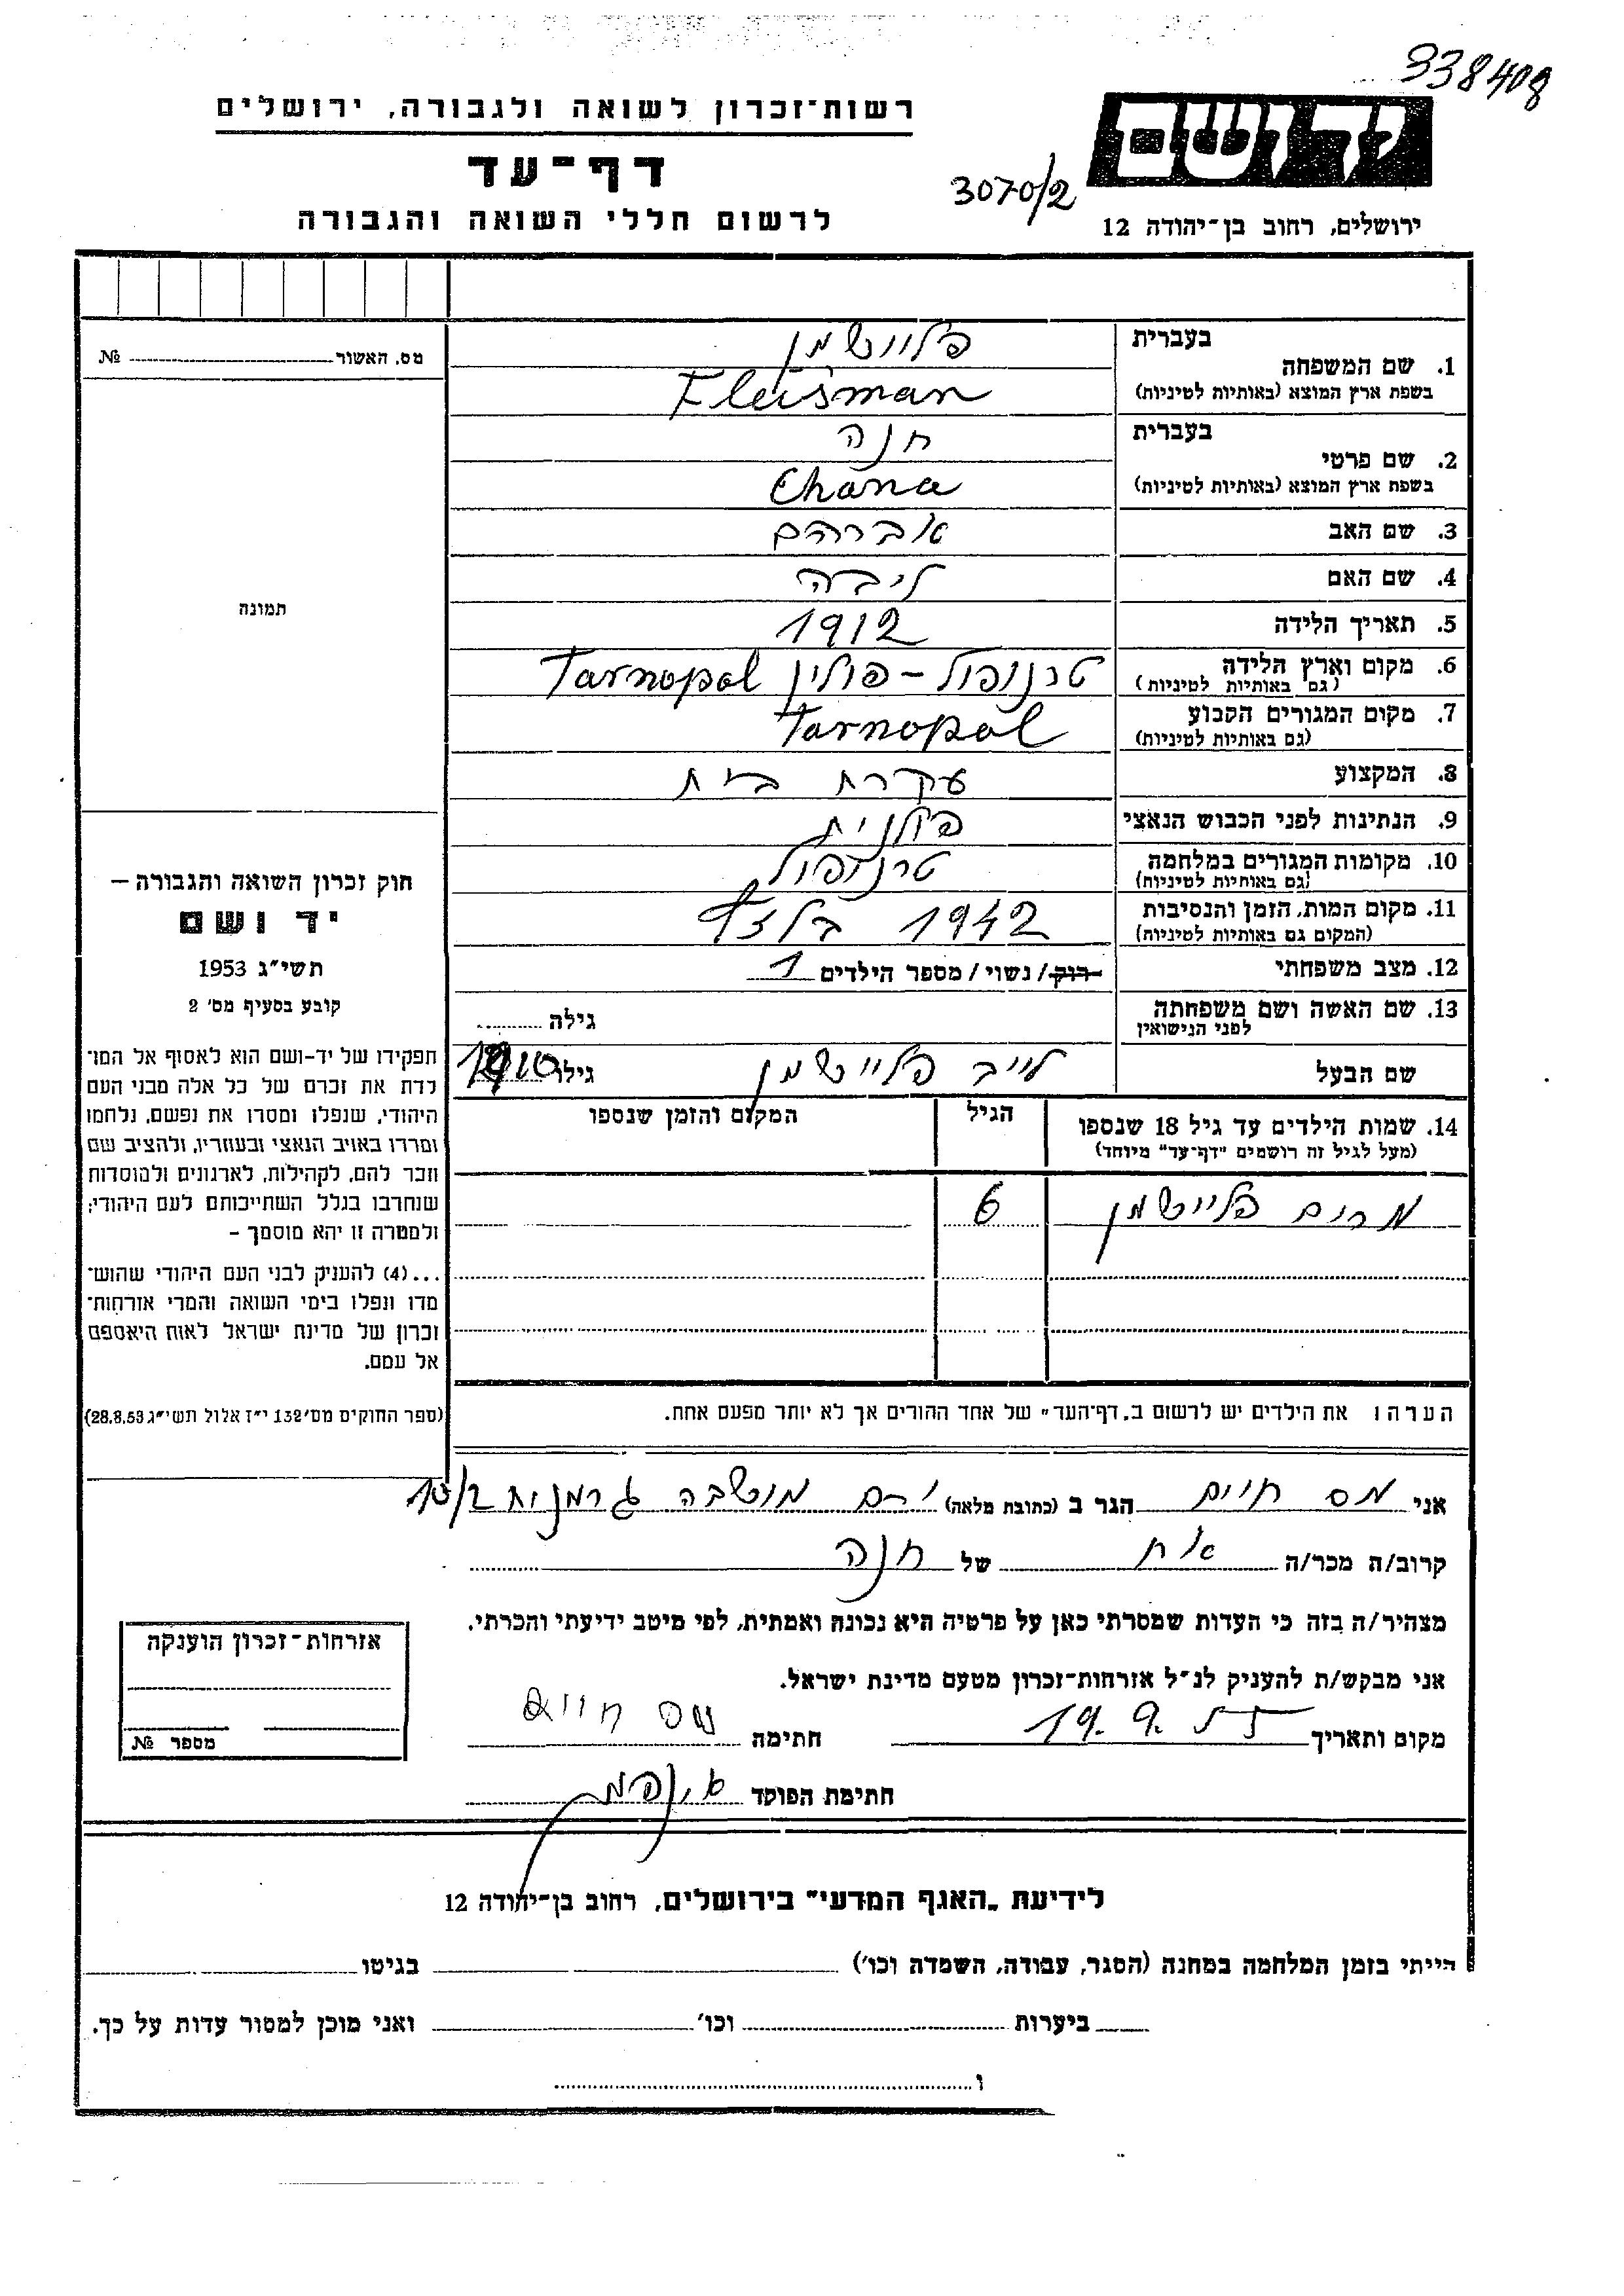 338408
רשות־זכרון לשואה ולגבורה, ירושלים
דף־עד
3070/2
ידושם
לרשום חללי השואה והגבורה
ירושלים, רחוב בן־יהודה 12
מס. האשור № 
בעברית
פליישמן
1. שם המשפחה
בשפת ארץ המוצא (באותיות לטיניות)
Fleisman
בעברית
חנה
2. שם פרטי
בשפת ארץ המוצא (באותיות לטיניות)
Chana
3. שם האב אברהם
4. שם האם ליבה
5. תאריך הלידה 1912
6. מקום וארץ הלידה טרנופול – פולין Tarnopol
(גם באותיות לטיניות)
7. מקום המגורים הקבוע Tarnopol
(גם באותיות לטיניות)
8. המקצוע עקרת בית
9. הנתינות לפני הכבוש הנאצי פולנית
10. מקומות המגורים במלחמה טרנופול
(גם באותיות לטיניות)
11. מקום המות, הזמן והנסיבות 1942 בלזץ
(המקום גם באותיות לטיניות)
12. מצב משפחתי רוק/ נשוי / מספר הילדים 1
13. שם האשה ושם משפחתה
לפני הנישואין
גילה
שם הבעל לייב פליישמן גילו
14. שמות הילדים עד גיל 18 שנספו
(מעל לגיל זה רושמים "דף־עד" מיוחד)
הגיל
המקום והזמן שנספו
מרים פליישמן 6
תמונה
חוק זכרון השואה והגבורה –
יד ושם
תשי״ג 1953
קובע בסעיף מס' 2
תפקידו של יד-ושם הוא לאסוף אל המו־
לדת את זכרם של כל אלה מבני העם
היהודי, שנפלו ומסרו את נפשם, נלחמו
ומרדו באויב הנאצי ובעוזריו, ולהציב שם
וזכר להם, לקהילות, לארגונים ולמוסדות
שנחרבו בגלל השתייכותם לעם היהודי;
ולמטרה זו יהא מוסמך –
...(4) להעניק לבני העם היהודי שהוש־
מדו ונפלו בימי השואה והמרי אזרחות־
זכרון של מדינת ישראל לאות היאספם
אל עמם.
(ספר החוקים מס׳ 132 י״ז אלול תשי״ג 28.8.53)
הערה ו את הילדים יש לרשום ב„דף־העד״ של אחד ההורים אך לא יותר מפעם אחת.
אני מס חיים הגר ב (כתובת מלאה) י-ם מושבה גרמנית 10/2
קרוב/ה מכר/ה אח של חנה
מצהיר/ה בזה כי העדות שמסרתי כאן על פרטיה היא נכונה ואמתית, לפי מיטב ידיעתי והכרתי.
אני מבקש/ת להעניק לנ״ל אזרחות־זכרון מטעם מדינת ישראל.
מקום ותאריך 19. 9. 55 חתימה מס חיים
חתימת הפוקד
אזרחות־זכרון הוענקה
מספר №
לידיעת „האגף המדעי״ בירושלים, רחוב בן־יהודה 12
הייתי בזמן המלחמה במחנה (הסגר, עבודה, השמדה וכו׳) בגיטו
ביערות וכו׳ ואני מוכן למסור עדות על כך.
ו